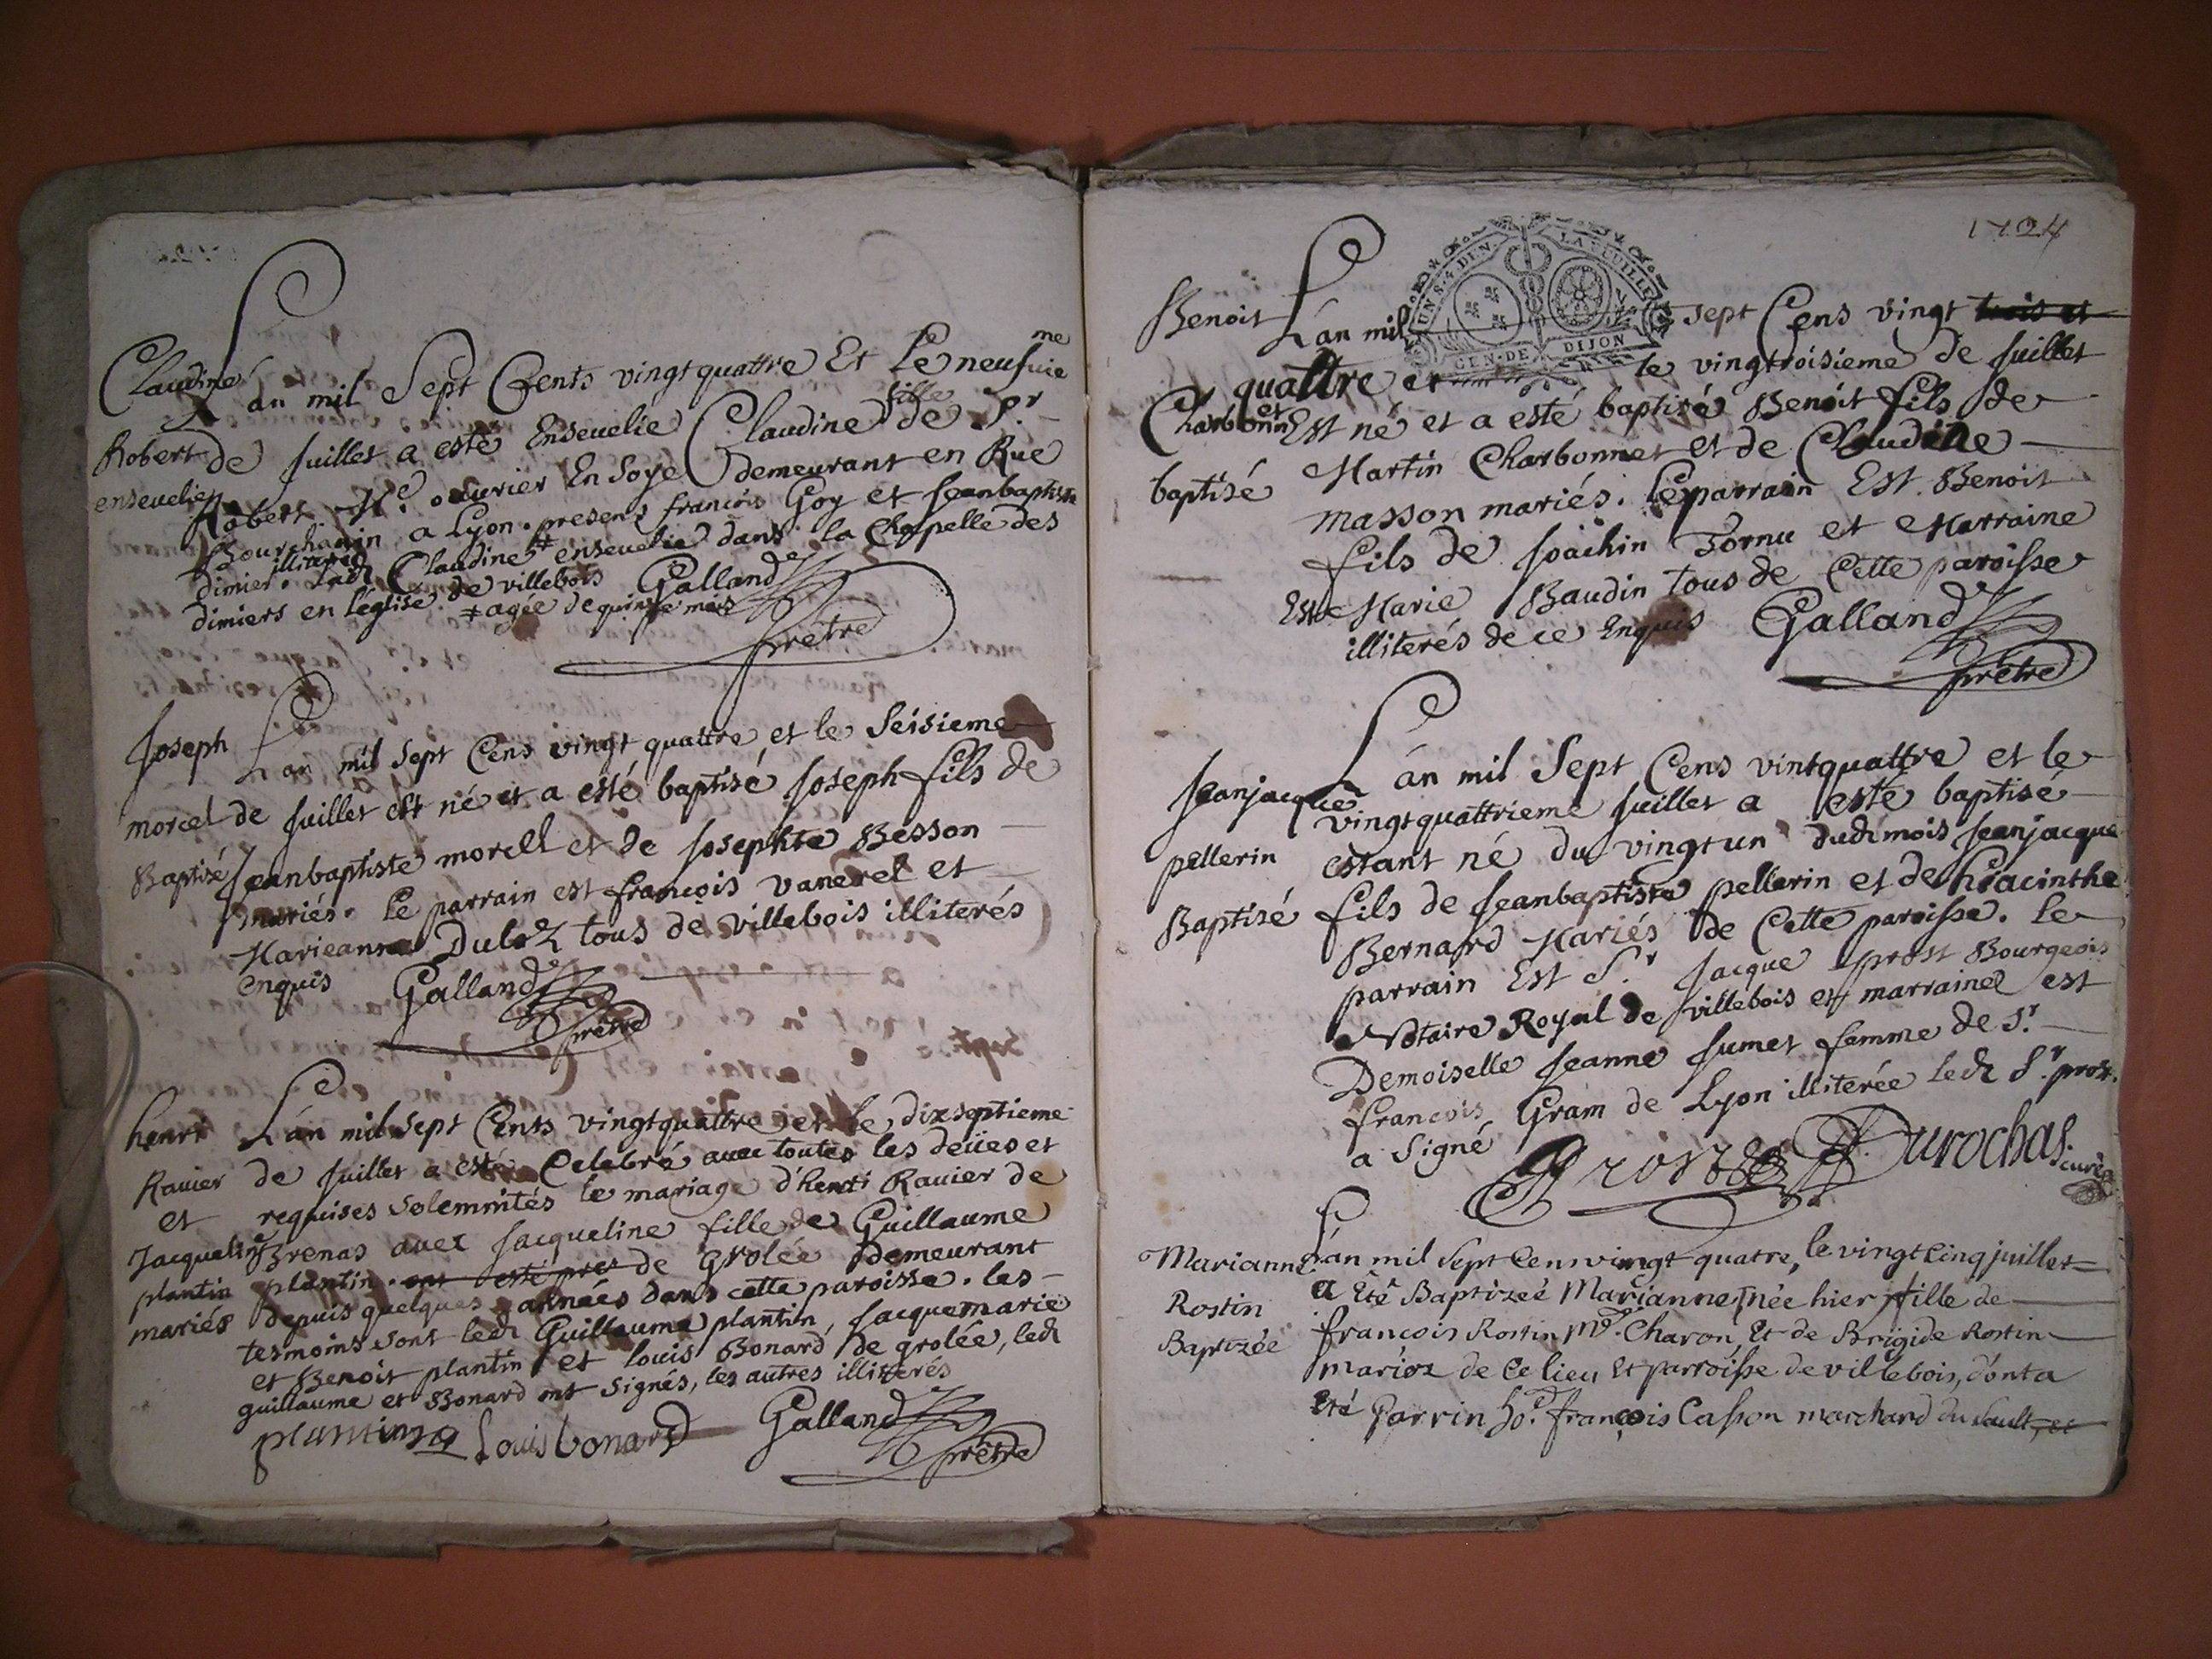 Claudine
Robert
enseuelie
L'an mil Sept Cents vingtquattre Et Le neufme
de Juillet a esté Enseuelie Claudine fille de Sr
Robert Me ouurier En Soye demeurant en Rue
Bourchanin a Lyon. presens francois Goy et Jeanbaptiste
dimier. illiterés Ladt Claudine ‡ enseuelie dans la Chapelle des
dimiers en l'église de villebois Galland
‡ agée de quinze mois prêtre
Joseph
morel
Baptisé
L'an mil Sept Cens vingt quattre et le Seisieme
de Juillet est né et a esté baptisé Joseph fils de
Jeanbaptiste morell et de Josephte Besson
mariés. Le parrain est francois vanerel et
Marieanne tous de villebois illiterés
enquis Galland
prêtre
henri
Rauier
et
Jacqueline
plantin
mariés
L'an mil Sept Cents vingtquattre et le dixseptieme
de Juillet a esté Celebré auec toutes les deües et
requises Solemnités le mariage d'henri Rauier de
Brenas auec Jacqueline fille de Guillaume
plantin. ont esté pres de Grolée Demeurant
depuis quelques années dans cette paroisse. les
tesmoins sont ledt Guillaume plantin, Jacquemarie
et Benoit plantin et louis Bonard de grolée, ledt
guillaume et Bonard ont Signés, les autres illiterés
plantin Louis bonard Galland
prêtre
1724
UN S. 4. DEN. LA FEUILLE
GEN. DE DIJON
Benoit
Charbonnet
baptisé
L'an mil sept Cens vingt trois et
quattre et le vingtroisieme de Juillet
Est né et a esté baptisé Benoit fils de
Martin Charbonnet et de Claudine
masson mariés. Le parrain Est Benoit
fils de Joachin Tornu et Marraine
Est Marie Baudin tous de Cette paroisse
illiterés de ce Enquis Galland
prêtre
Jeanjacque
pellerin
Baptisé
L'an mil Sept Cens vintquattre et le
vingtquattrieme Juillet a esté baptisé
estant né du vingtun dudt mois Jeanjacque
fils de Jeanbaptiste pellerin et de hiacinthe
Bernard Mariés de Cette paroisse. Le
parrain Est Sr Jacque prost Bourgeois
Notaire Royal de villebois et marraine est
Demoiselle Jeanne Jumet femme de Sr
francois Gram de Lyon illiterée ledt Sr prost.
a Signé Prost Durochas
curé
Marianne
Rostin
Baptizée
L'an mil Sept Cens vingt quatre, le vingt cinq juillet
a Eté Baptizeé Marianne née hier fille de
francois Rostin Md. Charon, Et de Brigide Rostin
mariez de Ce lieu Et parroisse de villebois, d'onta
Eté Parrin ho. francois Casson marchand du Sault, et